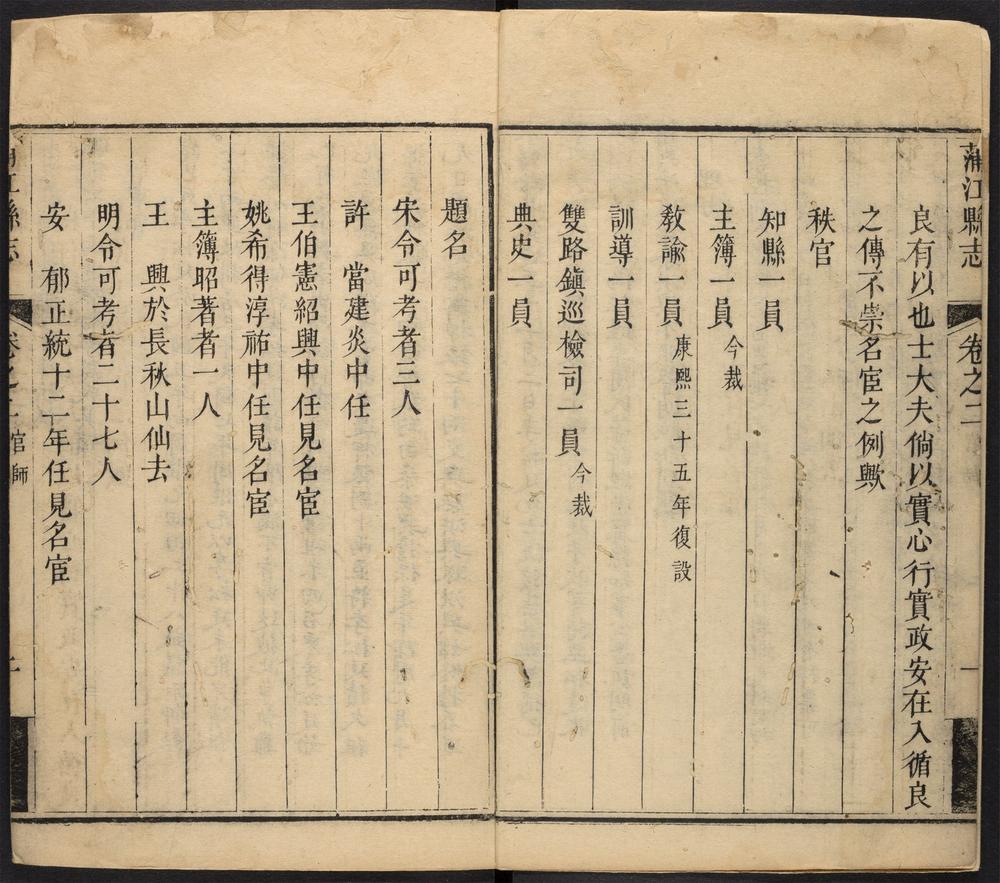 蒲江縣志
卷之二
一
良有以也士大夫倘以實心行實政安在入循良
之傳不崇名宦之例歟
秩官
知縣一員
主簿一員今裁
教諭一員康熙三十五年復設
訓導一員
雙路鎮巡檢司一員今裁
典史一員
題名
宋令可考者三人
許 當建炎中任
王伯憲紹興中任見名宦
姚希得淳祐中任見名宦
主簿昭著者一人
王 興於長秋山仙去
明令可考者二十七人
安 郁正統十二年任見名宦
江縣志
卷之二
官師